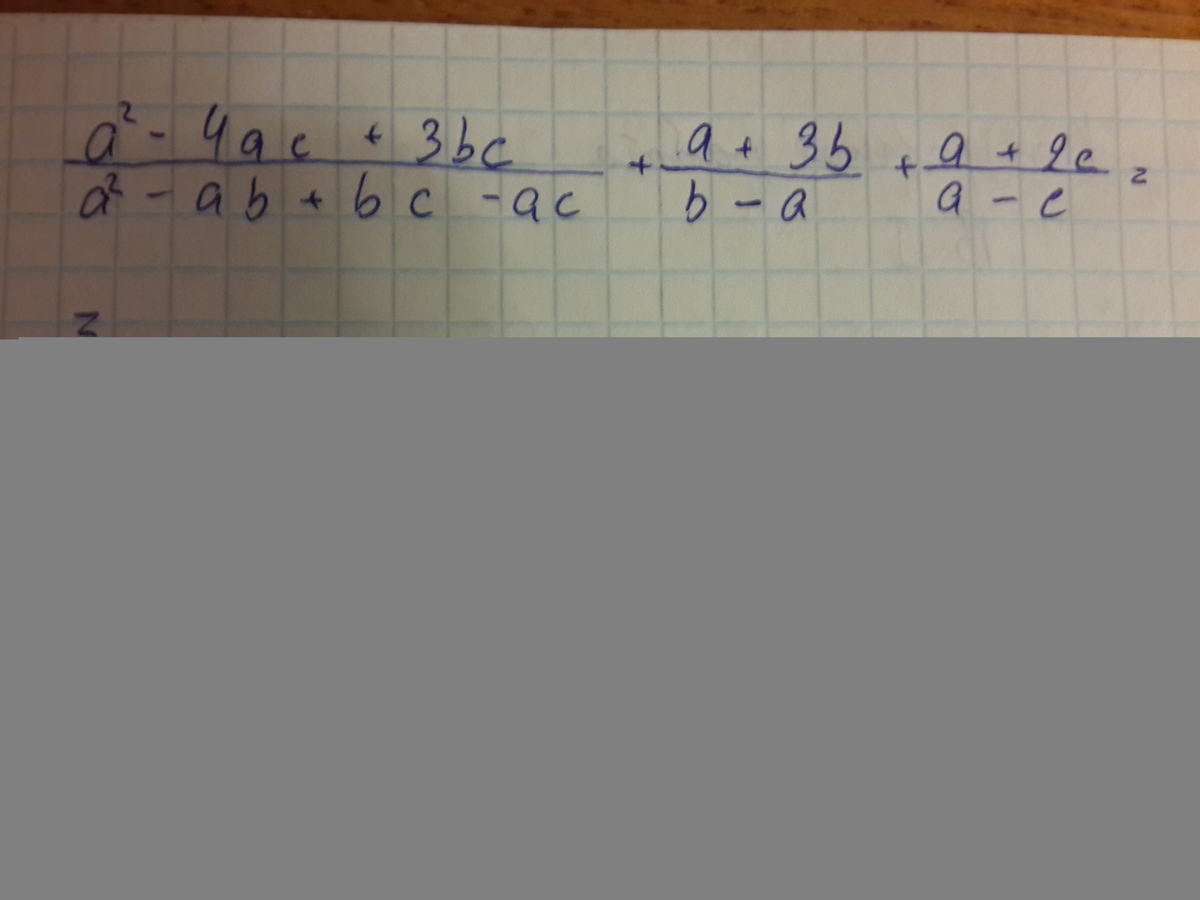 a² - 4ac + 3bc / a² - ab + bc - ac + a + 3b / b - a + a + 2c / a - c =
=